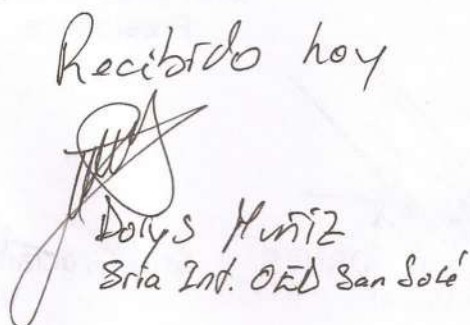 Recibido hoy
Dorys Muñiz
Sria Int. OED San José